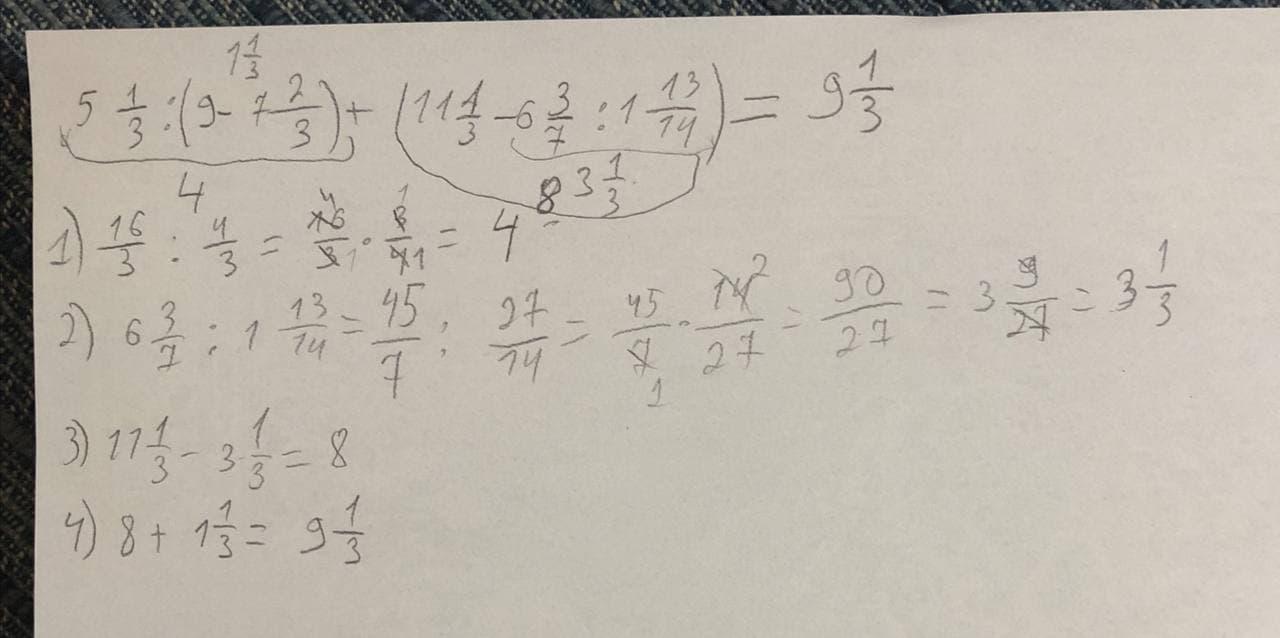 1 1/3
5 1/3 : (9 - 7 2/3) + (11 1/3 - 6 3/7 : 1 13/14) = 9 1/3
4 8 3 1/3
1) 16/3 : 4/3 = 16/3 4 1 · 3/4 1 1 = 4
2) 6 3/7 : 1 13/14 = 45/7 : 27/14 = 45/7 1 · 14/27 2 = 90/27 = 3 9/27 = 3 1/3
3) 11 1/3 - 3 1/3 = 8
4) 8 + 1 1/3 = 9 1/3